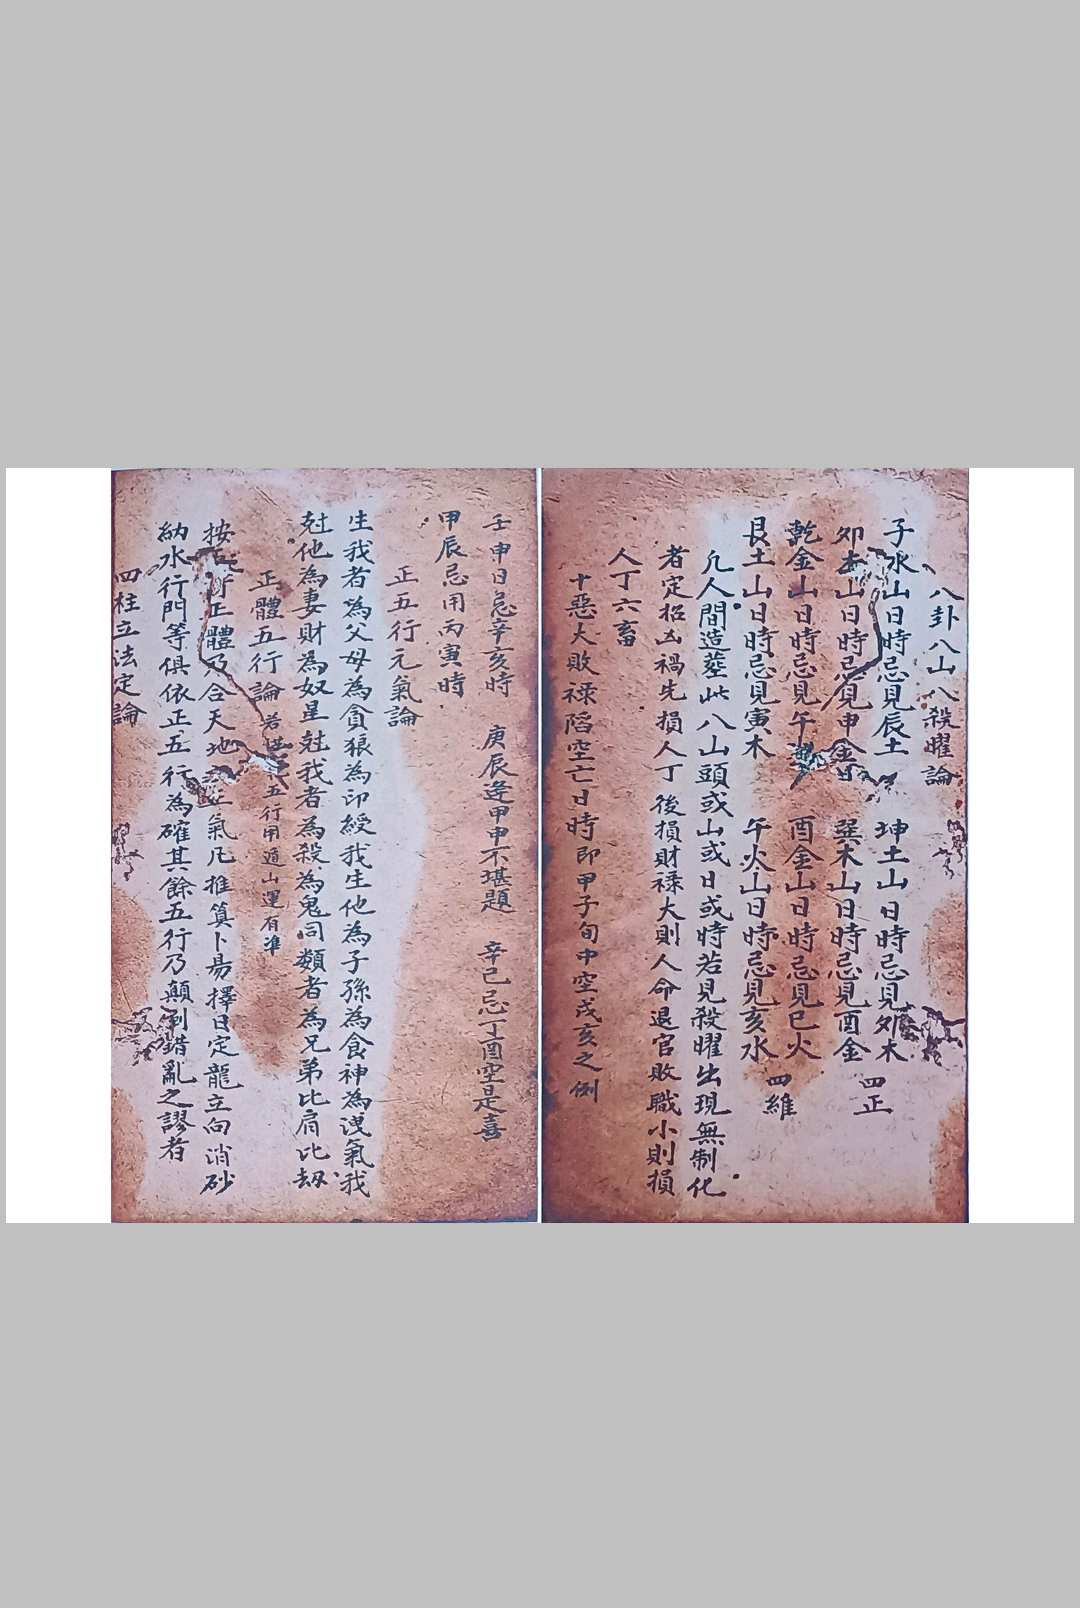 八卦八山八殺曜論
子水山日時忌見辰土 坤土山日時忌見夘木 四正
夘木山日時忌見申金 巽木山日時忌見酉金
乾金山日時忌見午 酉金山日時忌見巳火 四維
艮土山日時忌見寅木 午火山日時忌見亥水
凡人間造塟此八山頭或山或日或時若見殺曜出現無制化
者定招凶禍先損人丁後損財祿大則人命退官敗職小則損
人丁六畜
十惡大敗祿陷空亡日時即甲子旬中空戌亥之例
壬申日忌辛亥時 庚辰逢甲申不堪題 辛巳忌丁酉空是喜
甲辰忌用丙寅時
正五行元氣論
生我者為父母為貪狼為印綬我生他為子孫為食神為洩氣我
尅他為妻財為奴星尅我者為殺為鬼同類者為兄弟比肩比劫
正體五行論 若 五行用遁山運有準
按 正體乃合天地 氣凡推算卜易擇日定龍立向消砂
納水行門等俱依正五行為確其餘五行乃顛倒錯亂之謬者
四柱立法定論